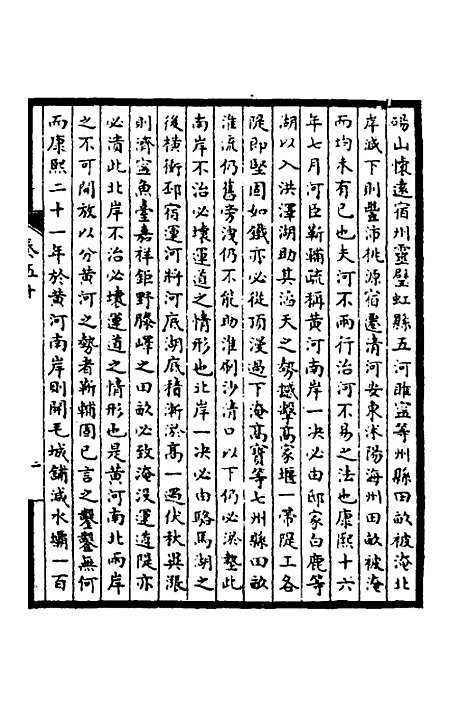 碭山懷遠宿州靈璧虹縣五河睢寧等州縣田畝被淹北
岸減下則豐沛桃源宿遷清河安東沭陽海州田畝被淹
而均未有已也夫河不兩行治河不易之法也康熙十六
年七月河臣靳輔疏稱黃河南岸一决必由邸家白鹿等
湖以入洪澤湖助其滔天之勢撼擊高家堰一帶隄工各
隄即堅固如鐵亦必從頂漫過下淹高寶等七州縣田畝
淮流仍舊旁洩仍不能助淮刷沙清口以下仍必淤墊此
南岸不治必壞運道之情形也北岸一决必由駱馬湖之
後橫衝邳宿運河將河底湖底積漸淤高一遇伏秋異漲
則濟寧魚臺嘉祥鉅野滕嶧之田畝必致淹沒運道隄亦
必潰此北岸不治必壞運道之情形也是黃河南北兩岸
之不可開放以分黃河之勢者靳輔固已言之鑿鑿無何
而康熙二十一年於黃河南岸則開毛城鋪減水壩一百
卷五十
二